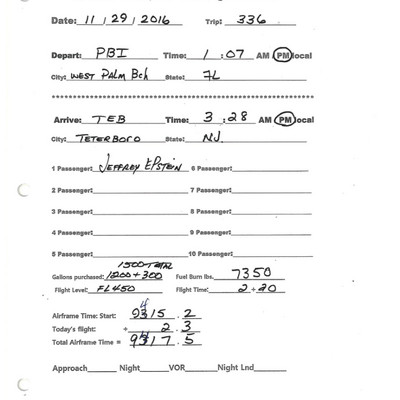 Date: 11 / 29 / 2016 Trip: 336
Depart: PBI Time: 1 : 07 AM PM local
City: WEST PALM BCH State: FL
Arrive: TEB Time: 3 : 28 AM PM local
City: TETERBORO State: NJ
1 Passenger: JEFFREY EPSTEIN 6 Passenger:
2 Passenger: 7 Passenger:
3 Passenger: 8 Passenger:
4 Passenger: 9 Passenger:
5 Passenger: 10 Passenger:
1500 TOTAL
Gallons purchased: 1200 + 300 Fuel Burn lbs. 7350
Flight Level: FL450 Flight Time: 2 + 20
Airframe Time: Start: 9315 . 2
Today's flight: + 2 . 3
Total Airframe Time = 9317 . 5
Approach Night VOR Night Lnd